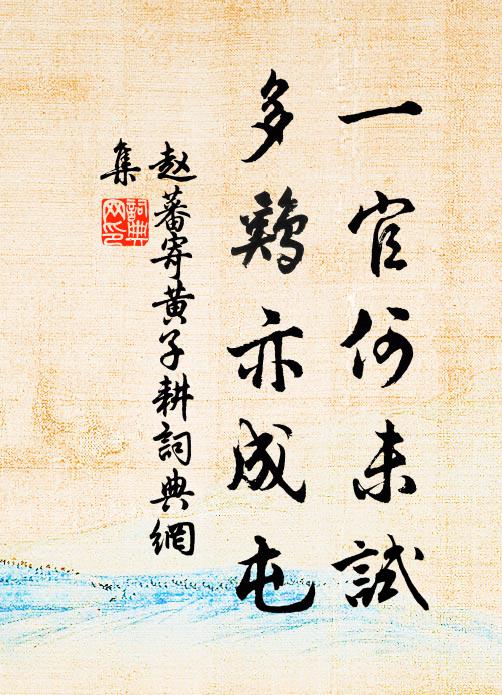 一官何未試
多難亦成屯
赵蕃寄黄子耕詞典網
集
詞典
网印